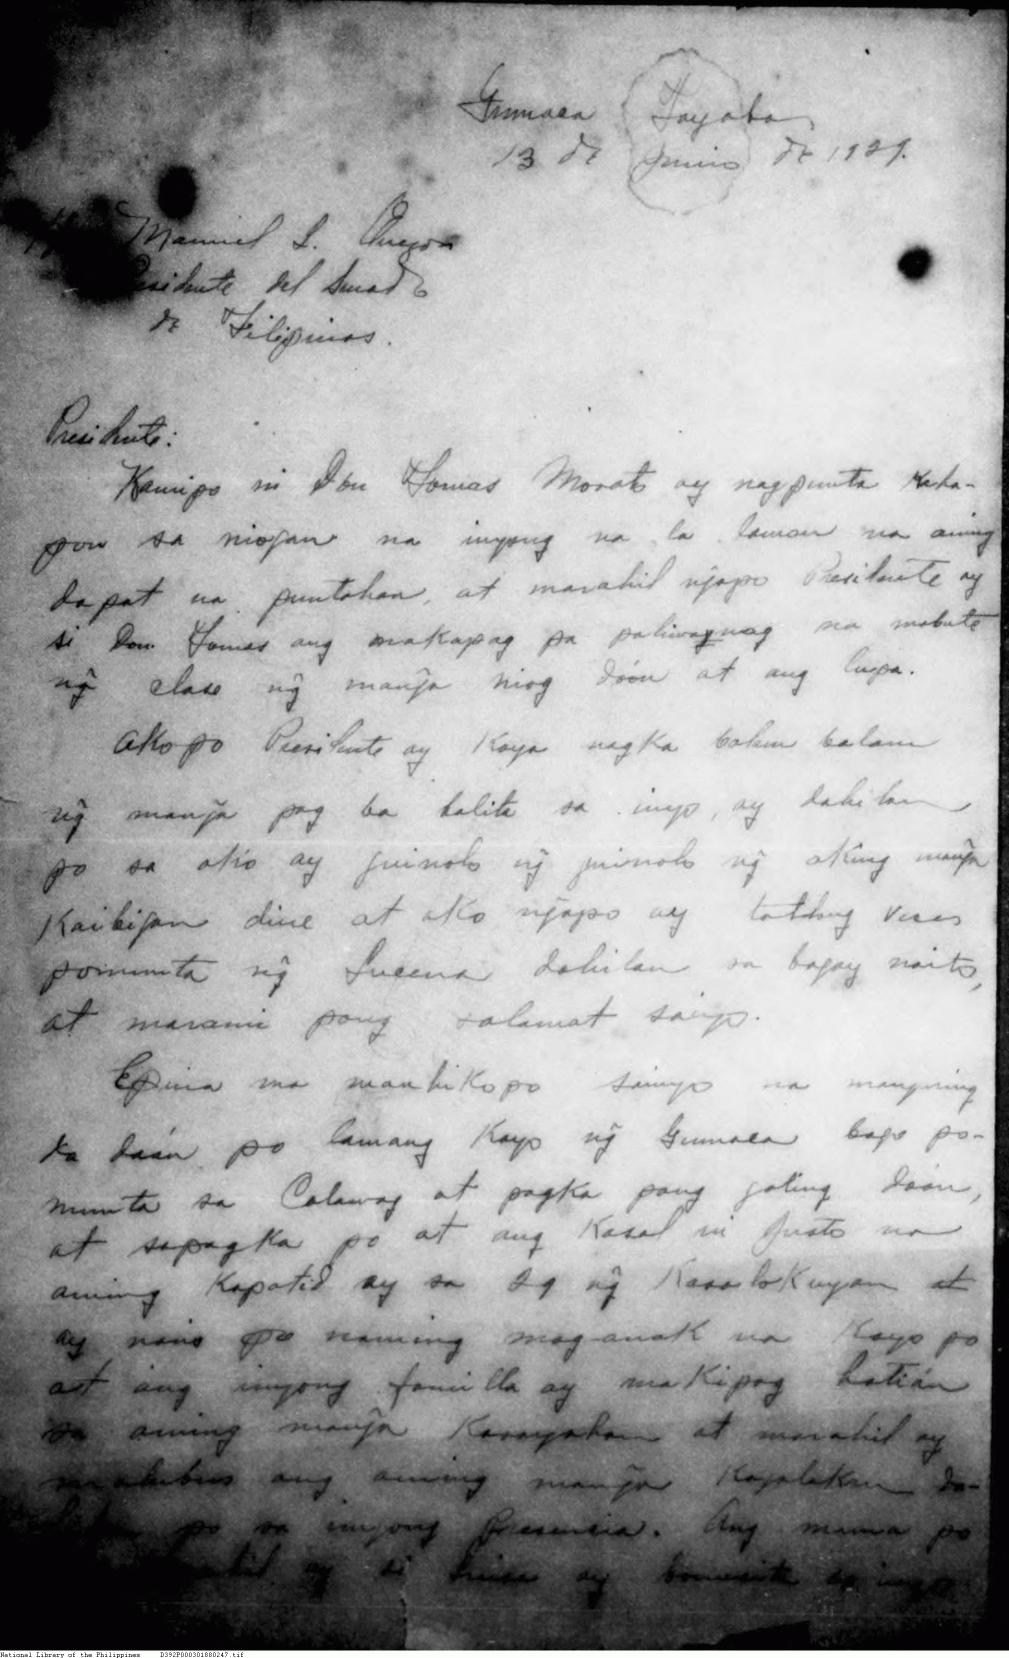 Gumaca Tayabas
13 de Junio de 1929.
Manuel L. Quezon
Presidente del Senado
de Filipinas.
Presidente:
Kamipo ni Don Tomas Morato ay nagpunta kaha-
pon sa niogan na inyong na la laman na aming
dapat na puntahan, at marahil ngapo Presidente ay
si Don Tomas ang makapag pa paliwanag na mabute
ng̃ clase ng̃ manga niog dóon at ang lupa.
Akopo Presidente ay kaya nagka balam balam
ng̃ mang̃a pag ba balita sa inyo, ay dahilan
po sa ako ay jinolo ng̃ jinolo ng̃ aking mang̃a
kaibigan dine at ako ng̃apo ay tatlong veces
pomunta ng̃ Lucena dahilan sa bagay naito,
at marami pong salamat sainyo.
Epina ma manhikopo sainyo na mangyaring
da daán po lamang kayo ng̃ Gumaca bago po-
munta sa Calawag at pagka pong galing dóon,
at sapagka po at ang kasal ni Justo na
aming kapatid ay sa 29 ng̃ kasalokuyan at
ay nais po naming mag-anak na kayo po
at ang inyong familla ay makipag batián
sa aming mang̃a kasayahan at marahil ay
malubos ang aming mang̃a kagalakan da-
po sa inyong presencia. Ang mama po
ay si Luisa ay bomabate sa inyo
National Library of the Philippines D392P000301880247.tif